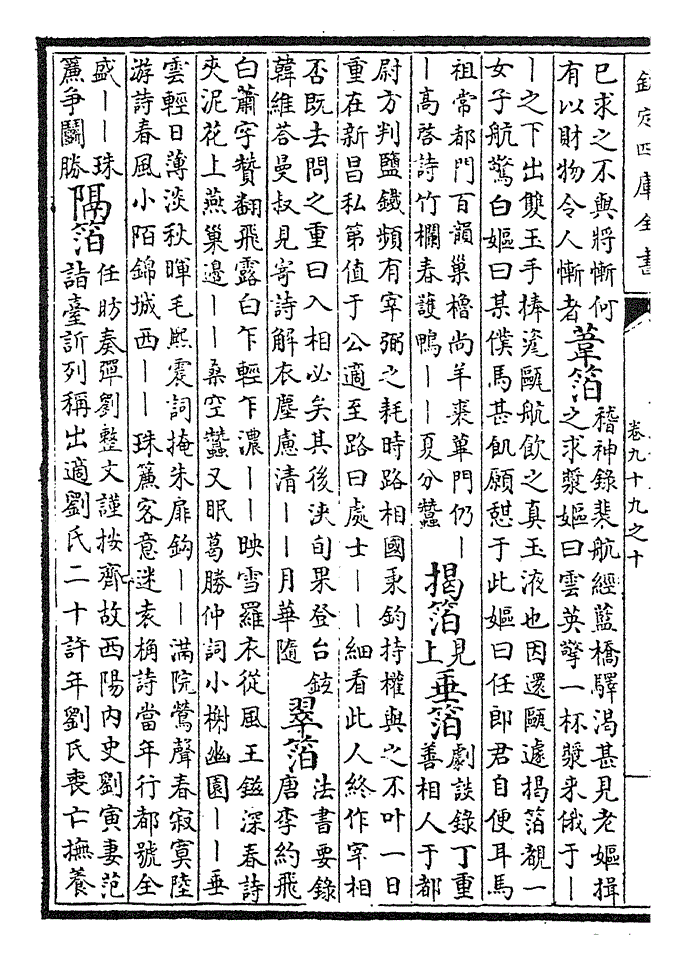 欽定四庫全書
卷九十九之十
已求之不與將慚何
有以財物令人慚者
葦箔
稽神錄裴航經藍橋驛渴甚見老嫗揖
之求漿嫗曰雲英擎一杯漿來俄于｜
｜之下出雙玉手捧瓷甌航飲之真玉液也因還甌遽揭箔覩一
女子航驚白嫗曰某僕馬甚飢願憇于此嫗曰任郎君自便耳馬
祖常都門百韻巢櫓尚羊裘蓽門仍｜
｜高啓詩竹欄春護鴨｜｜夏分蠶
揭箔
見
上
垂箔
劇談錄丁重
善相人于都
尉方判鹽鐵頻有宰弼之耗時路相國秉鈞持權與之不叶一日
重在新昌私第值于公適至路曰處士｜｜細看此人終作宰相
否既去問之重曰入相必矣其後浹旬果登台鉉
韓維荅曼叔見寄詩解衣塵慮清｜｜月華隨
翠箔
法書要錄
唐李約飛
白蕭字贊翻飛露白乍輕乍濃｜｜映雪羅衣從風王鎡深春詩
夾泥花上燕巢邊｜｜桑空蠶又眠葛勝仲詞小榭幽園｜｜垂
雲輕日薄淡秋暉毛熙震詞掩朱扉鈎｜｜滿院鶯聲春寂寞陸
游詩春風小陌錦城西｜｜珠簾客意迷袁桷詩當年行都號全
盛｜｜珠
簾争鬭勝
隔箔
任昉奏彈劉整文謹按齊故西陽内史劉寅妻范
詣臺訴列稱出適劉氏二十許年劉氏喪亡撫養